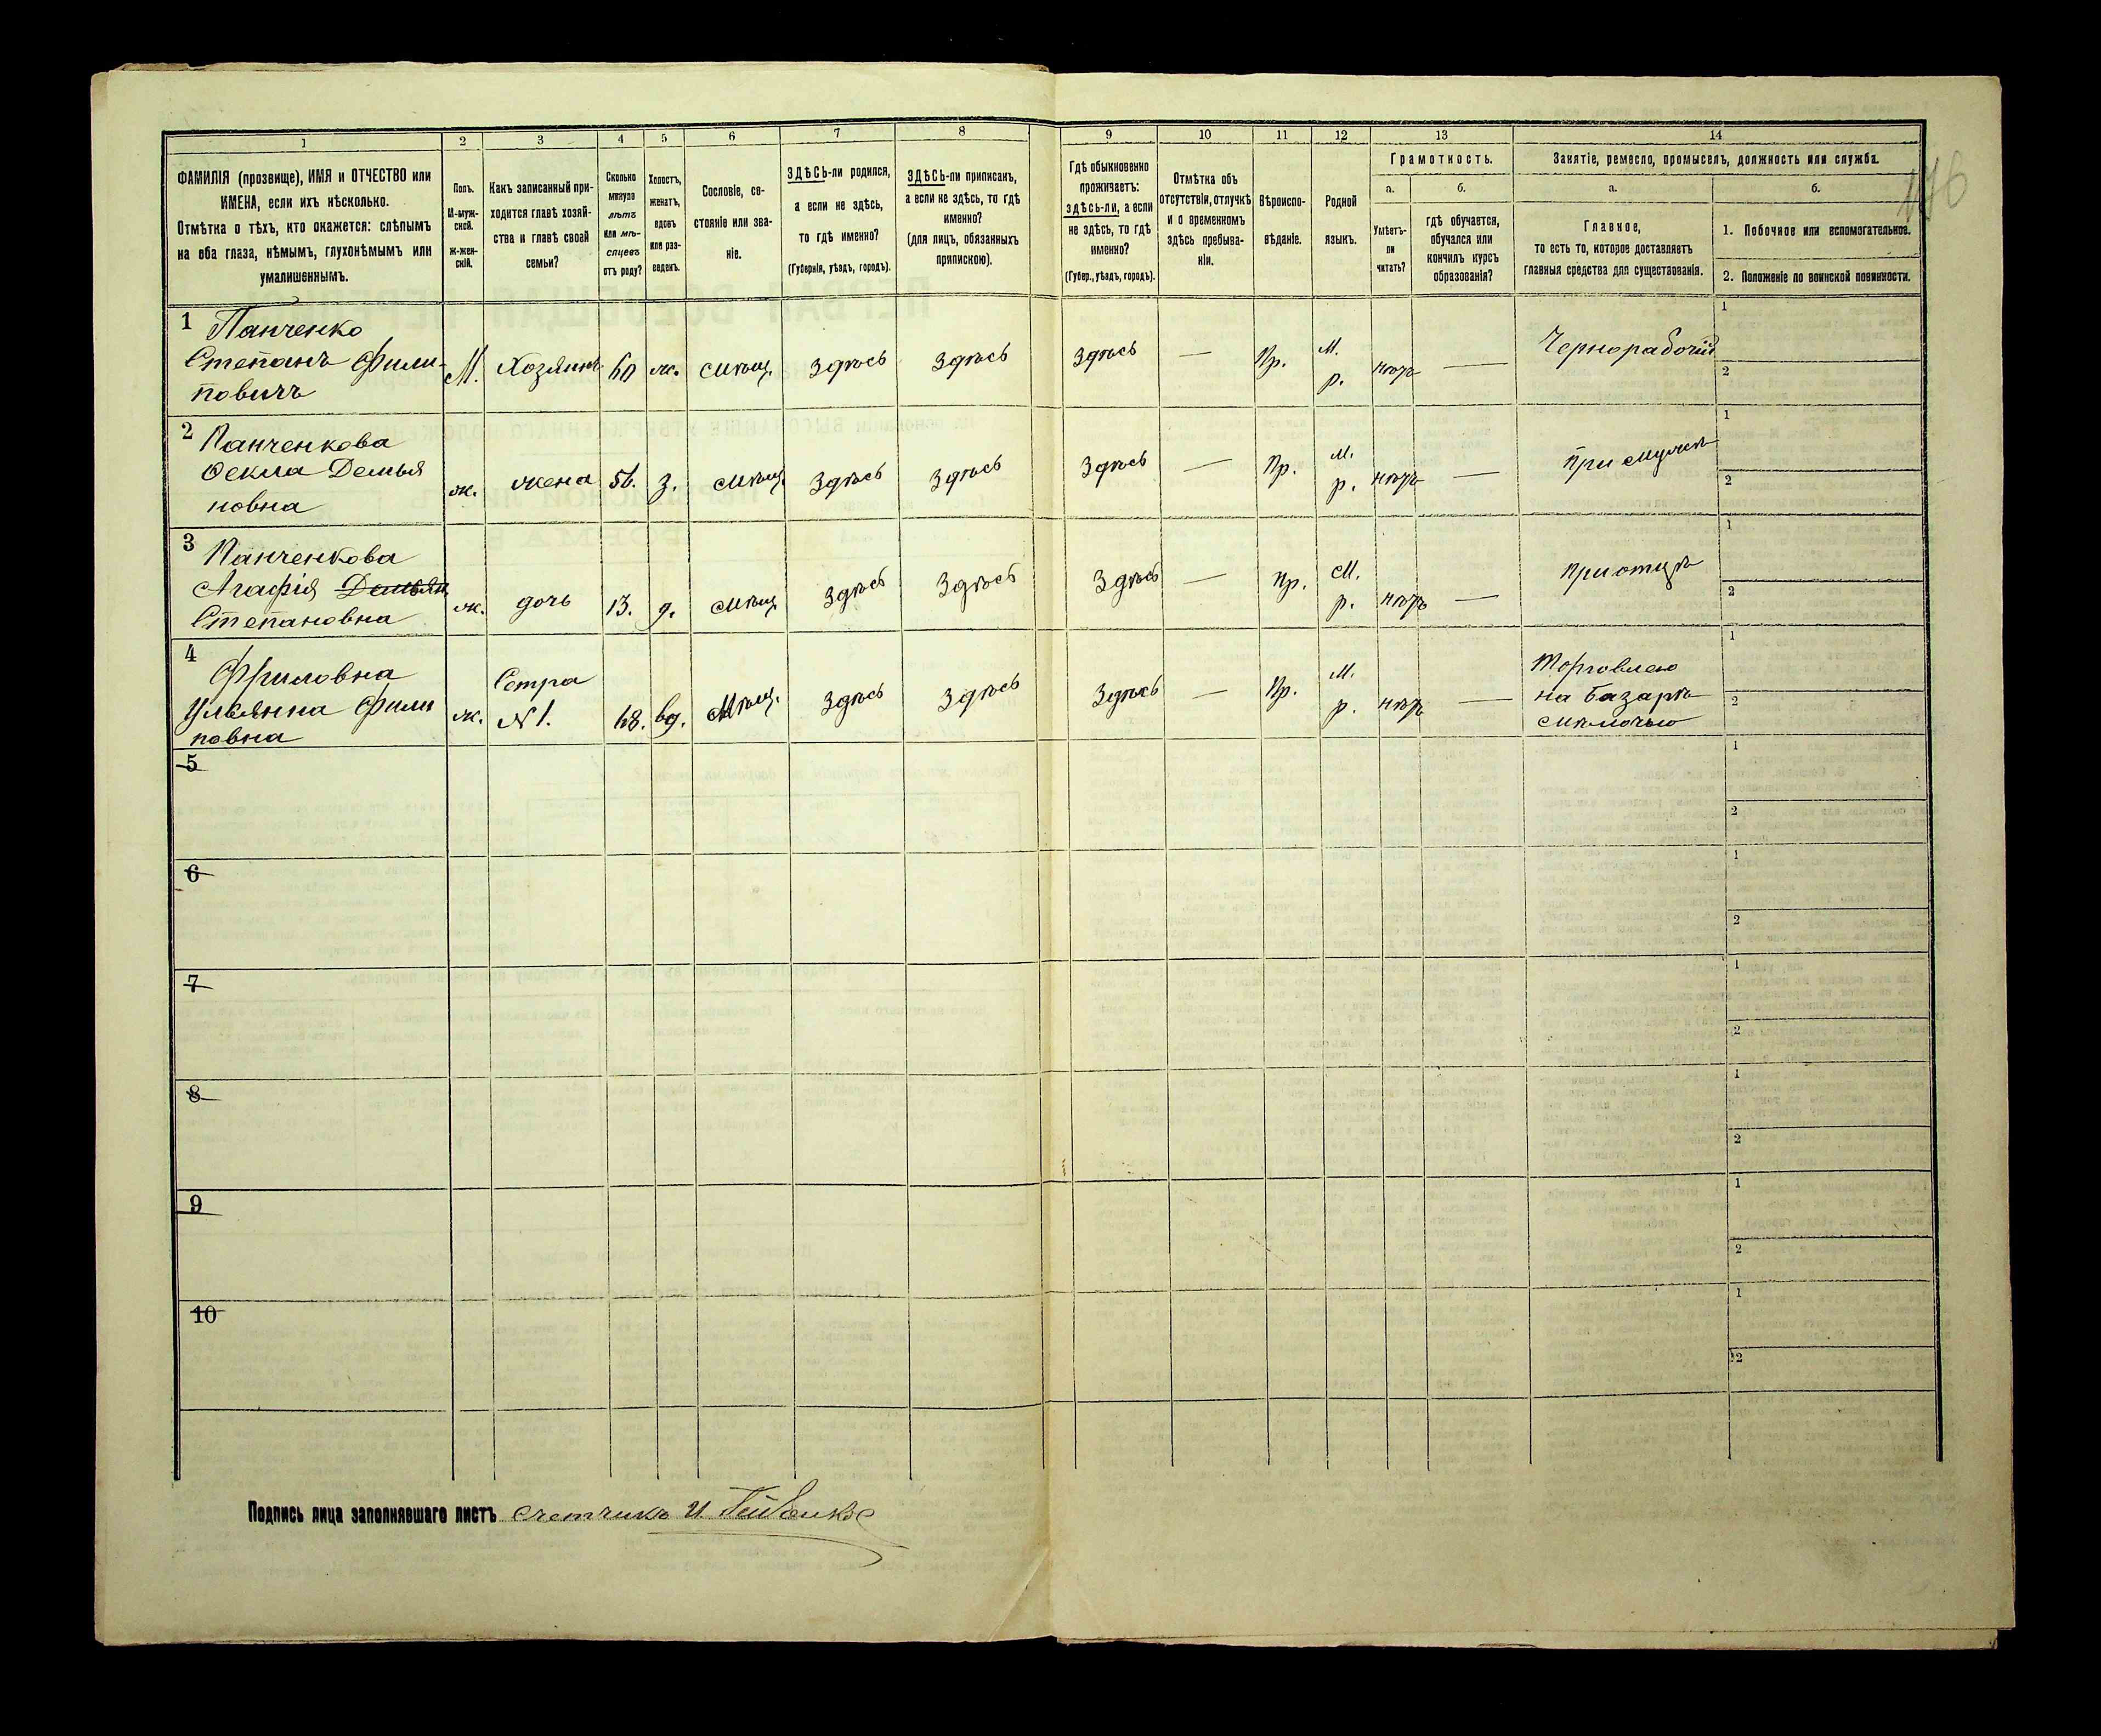 1 2 3 4 5 6 7 8 9 10 11 12 13 14
ФАМИЛІЯ (прозвище), ИМЯ и ОТЧЕСТВО или
ИМЕНА, если ихъ нѣсколько.
Отмѣтка о тѣхъ, кто окажется: слѣпымъ
на оба глаза, нѣмымъ, глухонѣмымъ или
умалишеннымъ.
Полъ.
М-муж-
ской.
Ж-жен-
скій.
Какъ записанный при-
ходится главѣ хозяй-
ства и главѣ своей
семьи?
Сколько
минуло
лѣтъ
или мѣ-
сяцевъ
отъ роду?
Холостъ,
женатъ,
вдовъ
или раз-
веденъ.
Сословіе, со-
стояніе или зва-
ніе.
ЗДѢСЬ-ли родился,
а если не здѣсь,
то гдѣ именно?
(Губернія, уѣздъ, городъ).
ЗДѢСЬ-ли приписанъ,
а если не здѣсь, то гдѣ
именно?
(для лицъ, обязанныхъ
припискою).
Гдѣ обыкновенно
проживаетъ:
здѣсь-ли, а если
не здѣсь, то гдѣ
именно?
(Губер., уѣздъ, городъ).
Отмѣтка объ
отсутствіи, отлучкѣ
и о временномъ
здѣсь пребыва-
ніи.
Вѣроиспо-
вѣданіе.
Родной
языкъ.
Грамотность.
а. б.
Умѣетъ-
ли
читать?
гдѣ обучается,
обучался или
кончилъ курсъ
образованія?
Занятіе, ремесло, промыселъ, должность или служба.
а. б.
Главное,
то есть то, которое доставляетъ
главныя средства для существованія.
1. Побочное или вспомогательное.
2. Положеніе по воинской повинности.
1 Панченко
Степанъ Фили-
повичъ
М. Хозяинъ 60 ж. мѣщ. Здѣсь Здѣсь Здѣсь — Пр. М. р. нѣтъ — Чернорабочій
1
2
2 Панченкова
Ѳекла Демья
новна
ж. жена 56. з. мѣщ. Здѣсь Здѣсь Здѣсь — Пр. м. р. нѣтъ — при мужѣ
1
2
3 Панченкова
Агафія Демьян
Степановна
ж. дочь 13. д. мѣщ. Здѣсь Здѣсь Здѣсь — Пр. М. р. нѣтъ — при отцѣ
1
2
4
Ульянна Фили
повна
ж. Сетра
N 1. 68. вд. мѣщ. Здѣсь Здѣсь Здѣсь — Пр. М. р. нѣтъ — торговлею
на базарѣ
смѣлочью
1
2
5
1
2
6
1
2
7
1
2
8
1
2
9
1
2
10
1
2
Подпись лица заполнявшаго листъ счетчикъ И.